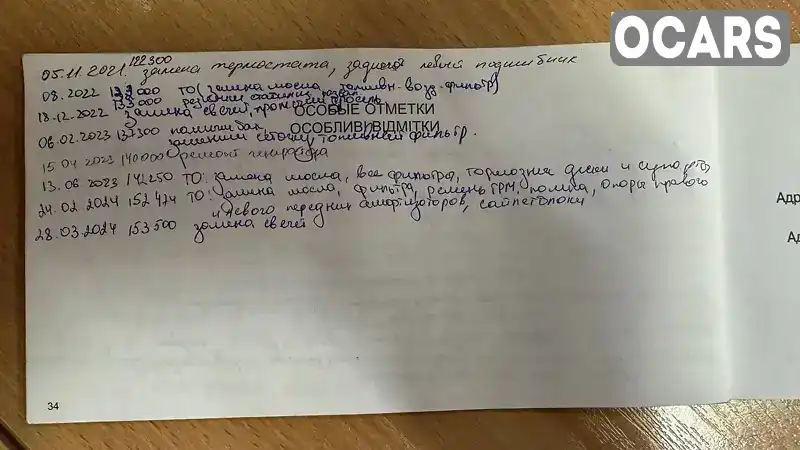 OCARS
122300
05.11.2021. замена термостата, задней левый подшибник
08.2022 133000 ТО (замена масла, топливн-возд-фильтр)
133000 резинки стабилиз, развал
18.12.2022 замена свечей, прочистил дросель
ОСОБЫЕ ОТМЕТКИ
06.02.2023 137300 помыли бак,
ОСОБЛИВІ ВІДМІТКИ
заменили сеточку, топливный фильтр.
15 04 2023 140000 ремонт генератора
13.06 2023 142250 ТО: замена масла, все фильтры, тормозния диски и супорты
24.02.2024 152424 ТО: замена масла, фильтра, ремень ГРМ, помпа, опоры правого
и левого передних амортизаторов, сайлетблоки
28.03.2024 153500 замена свечей
Адр
Ад
34